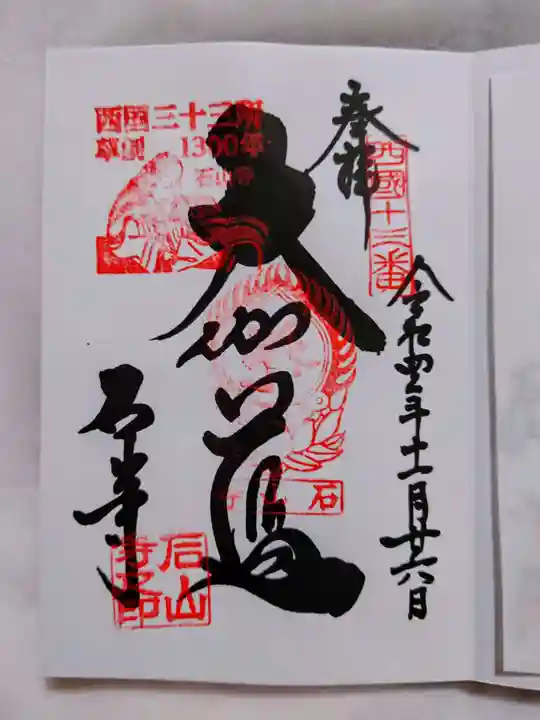 奉拝
西國十三番
令和四年十一月廿六日
大伽藍
西国三十三所
草創 1300年
石山寺
石山
石山寺
石山寺印